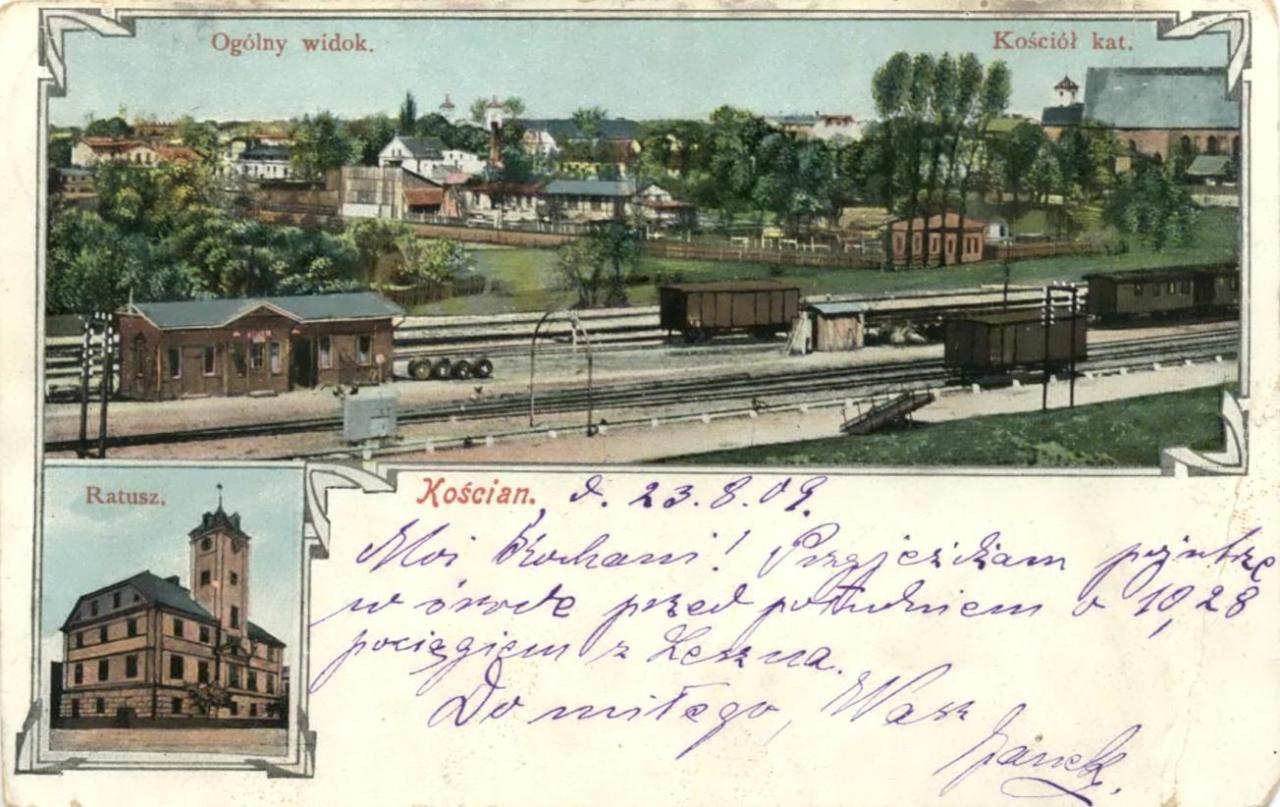 Ogólny widok.
Kościół kat.
Ratusz.
Kościan. d. 23.8.09.
Moi Kochani! Przyjeżdżam pojutrze
w środę przed południem o 10,28
pociągiem z Leszna.
Do miłego, Wasz
Janek.